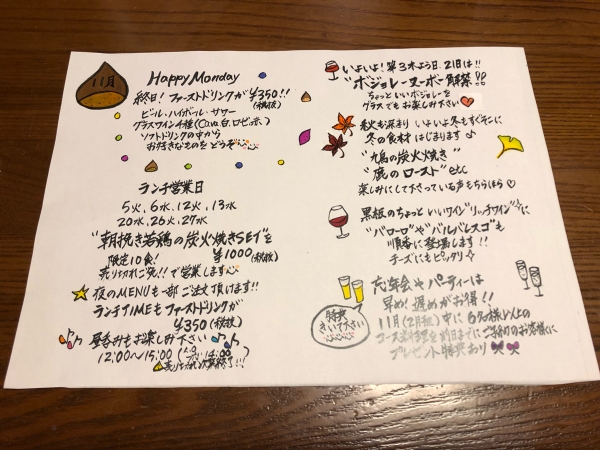 11月
Happy Monday
終日! ファーストドリンクが¥350!!
(税抜)
ビール、ハイボール・サワー
グラスワイン4種(Cava、白、ロゼ、赤、)
ソフトドリンクの中から
お好きなものをどうぞ
ランチ営業日
5火、6水、12火、13水
20水、26火、27水
"朝挽き若鶏の炭火焼きSET"を
限定10食! ¥1000(税抜)
売りきれご免!!で営業します
夜のMENUも一部ご注文頂けます!!
ランチTIMEもファーストドリンクが
¥350(税抜)
昼呑みもお楽しみ下さい
12:00〜15:00
いよいよ!第3木よう日、21日は!!
"ボジョレーヌーボー解禁"!!
ちょっといいボジョレーを
グラスでもお楽しみ下さい
秋も深まり いよいよ冬もすぐそこに
冬の食材 はじまります♪
"鳩の炭火焼き"
"鹿のロースト" etc
楽しみにして下さっている声もちらほら♡
黒板のちょっといいワイン"リッチワイン"に
"バローロ"や"バルバレスコ"も
順番に登場します!!
チーズにもピッタリ☆
忘年会やパーティーは
早め!遅めがお得!!
特典
きいて下さい
11月
中に6名様以上の
コース
を前日までにご予約のお客様に
プレゼント特典あり